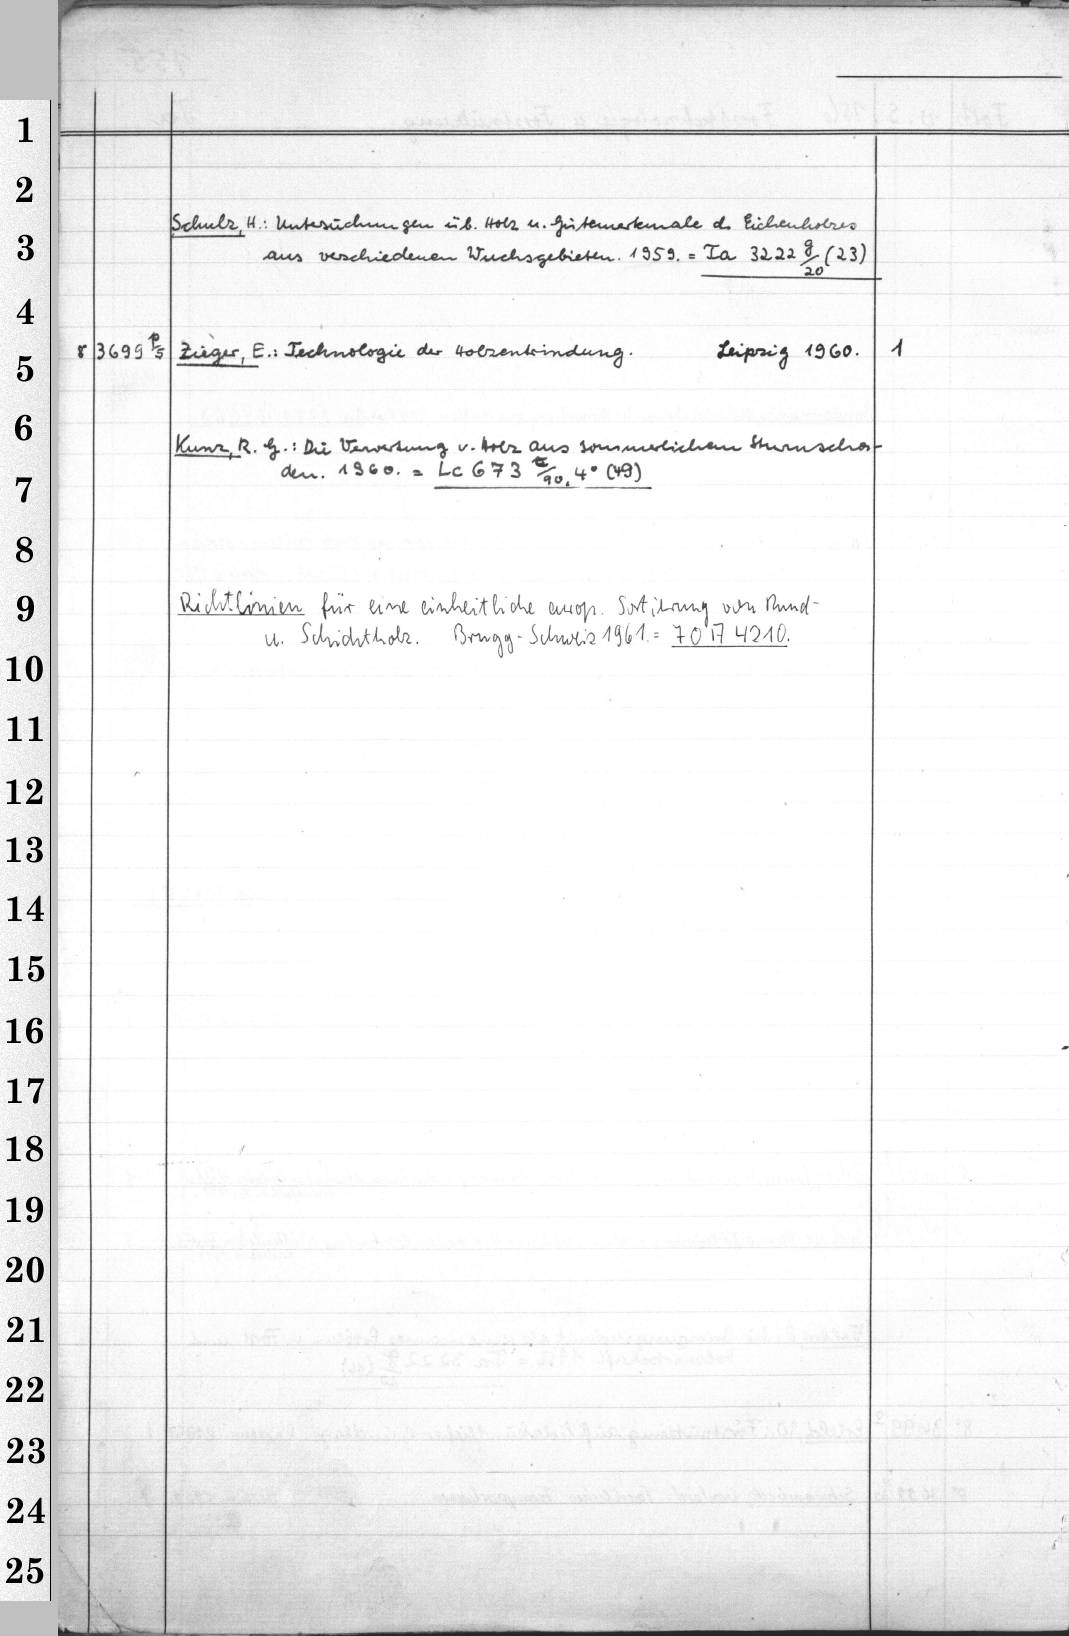 1
2
Schulz, H.: Untersuchungen üb. Holz u. Gütemerkmale d. Eichenholzes
3
aus verschiedenen Wuchsgebieten. 1959. = Ia 3222 g/20 (23)
4
8 3699 p/5 Zieger, E.: Technologie der Holzentrindung. Leipzig 1960. 1
5
6
Kunz, R. G.: Die Verwertung v. Holz aus sommerlichen Sturmschä-
den. 1960. = Lc 673 t/90, 4° (49)
7
8
9
Richtlinien für eine einheitliche europ. Sortierung von Rund-
u. Schichtholz. Brugg-Schweiz 1961. = 70 17 4210.
10
11
12
13
14
15
16
17
18
19
20
21
22
23
24
25